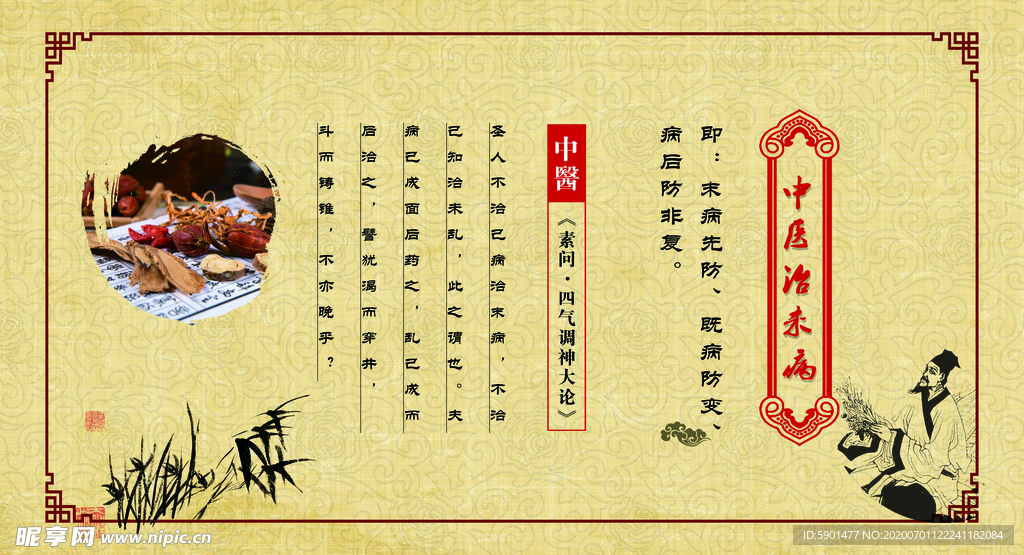 中医治未病
即：末病先防、既病防变、
病后防非复。
中醫
《素问·四气调神大论》
圣人不治已病治末病，不治
已知治未乱，此之谓也。夫
病已成面后药之，乱己成而
后治之，譬犹渴而穿井，
斗而铸锥，不亦晚乎？
昵享网 www.nipic.cn
ID:5901477 NO:20200701122241182084